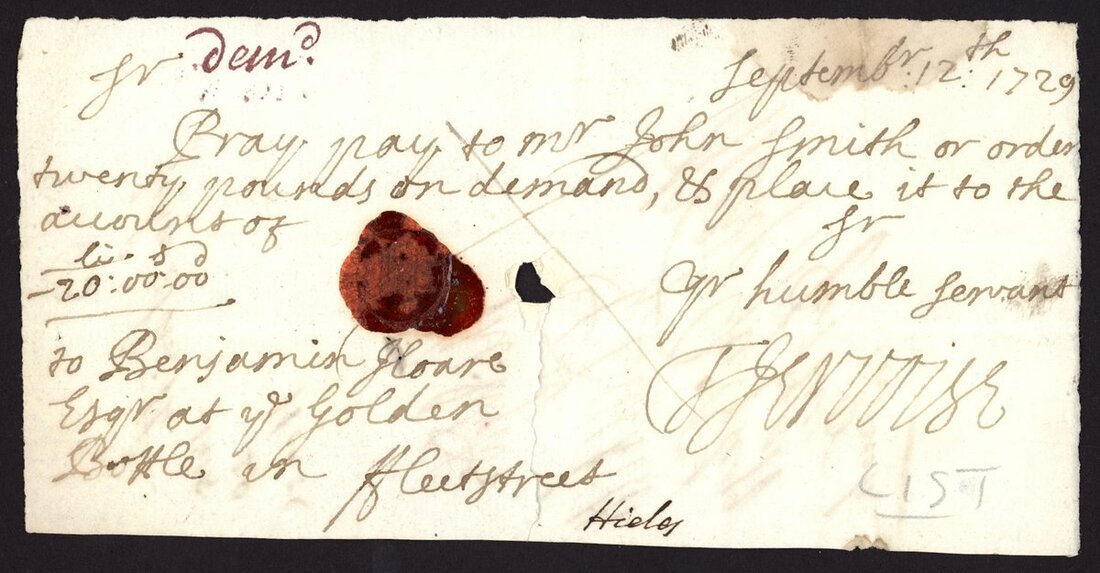 demd.
Sr Septembr. 12.th 1729
Pray pay to mr John Smith or order
twenty pounds on demand, & place it to the
account of Sr
li. s d
20:00:00 yr humble servant
to Benjamin Hoare
Esqr at ye Golden
Bottle in ffleetstreet
T Jervoise
LIST